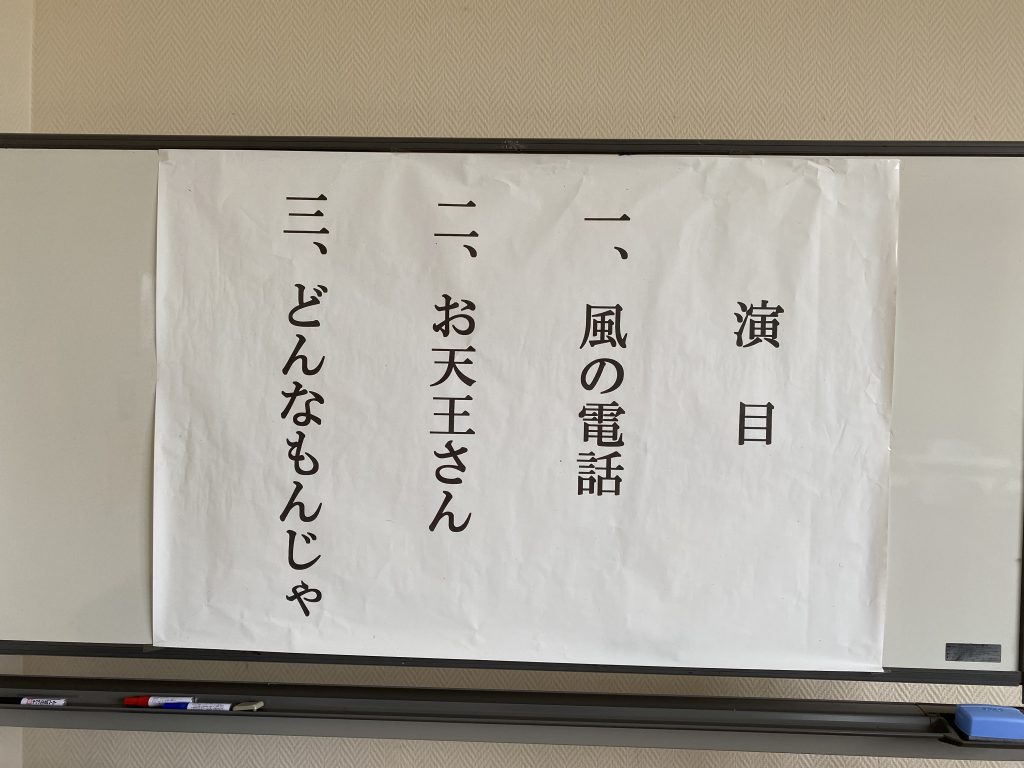 演目
一、風の電話
二、お天王さん
三、どんなもんじゃ